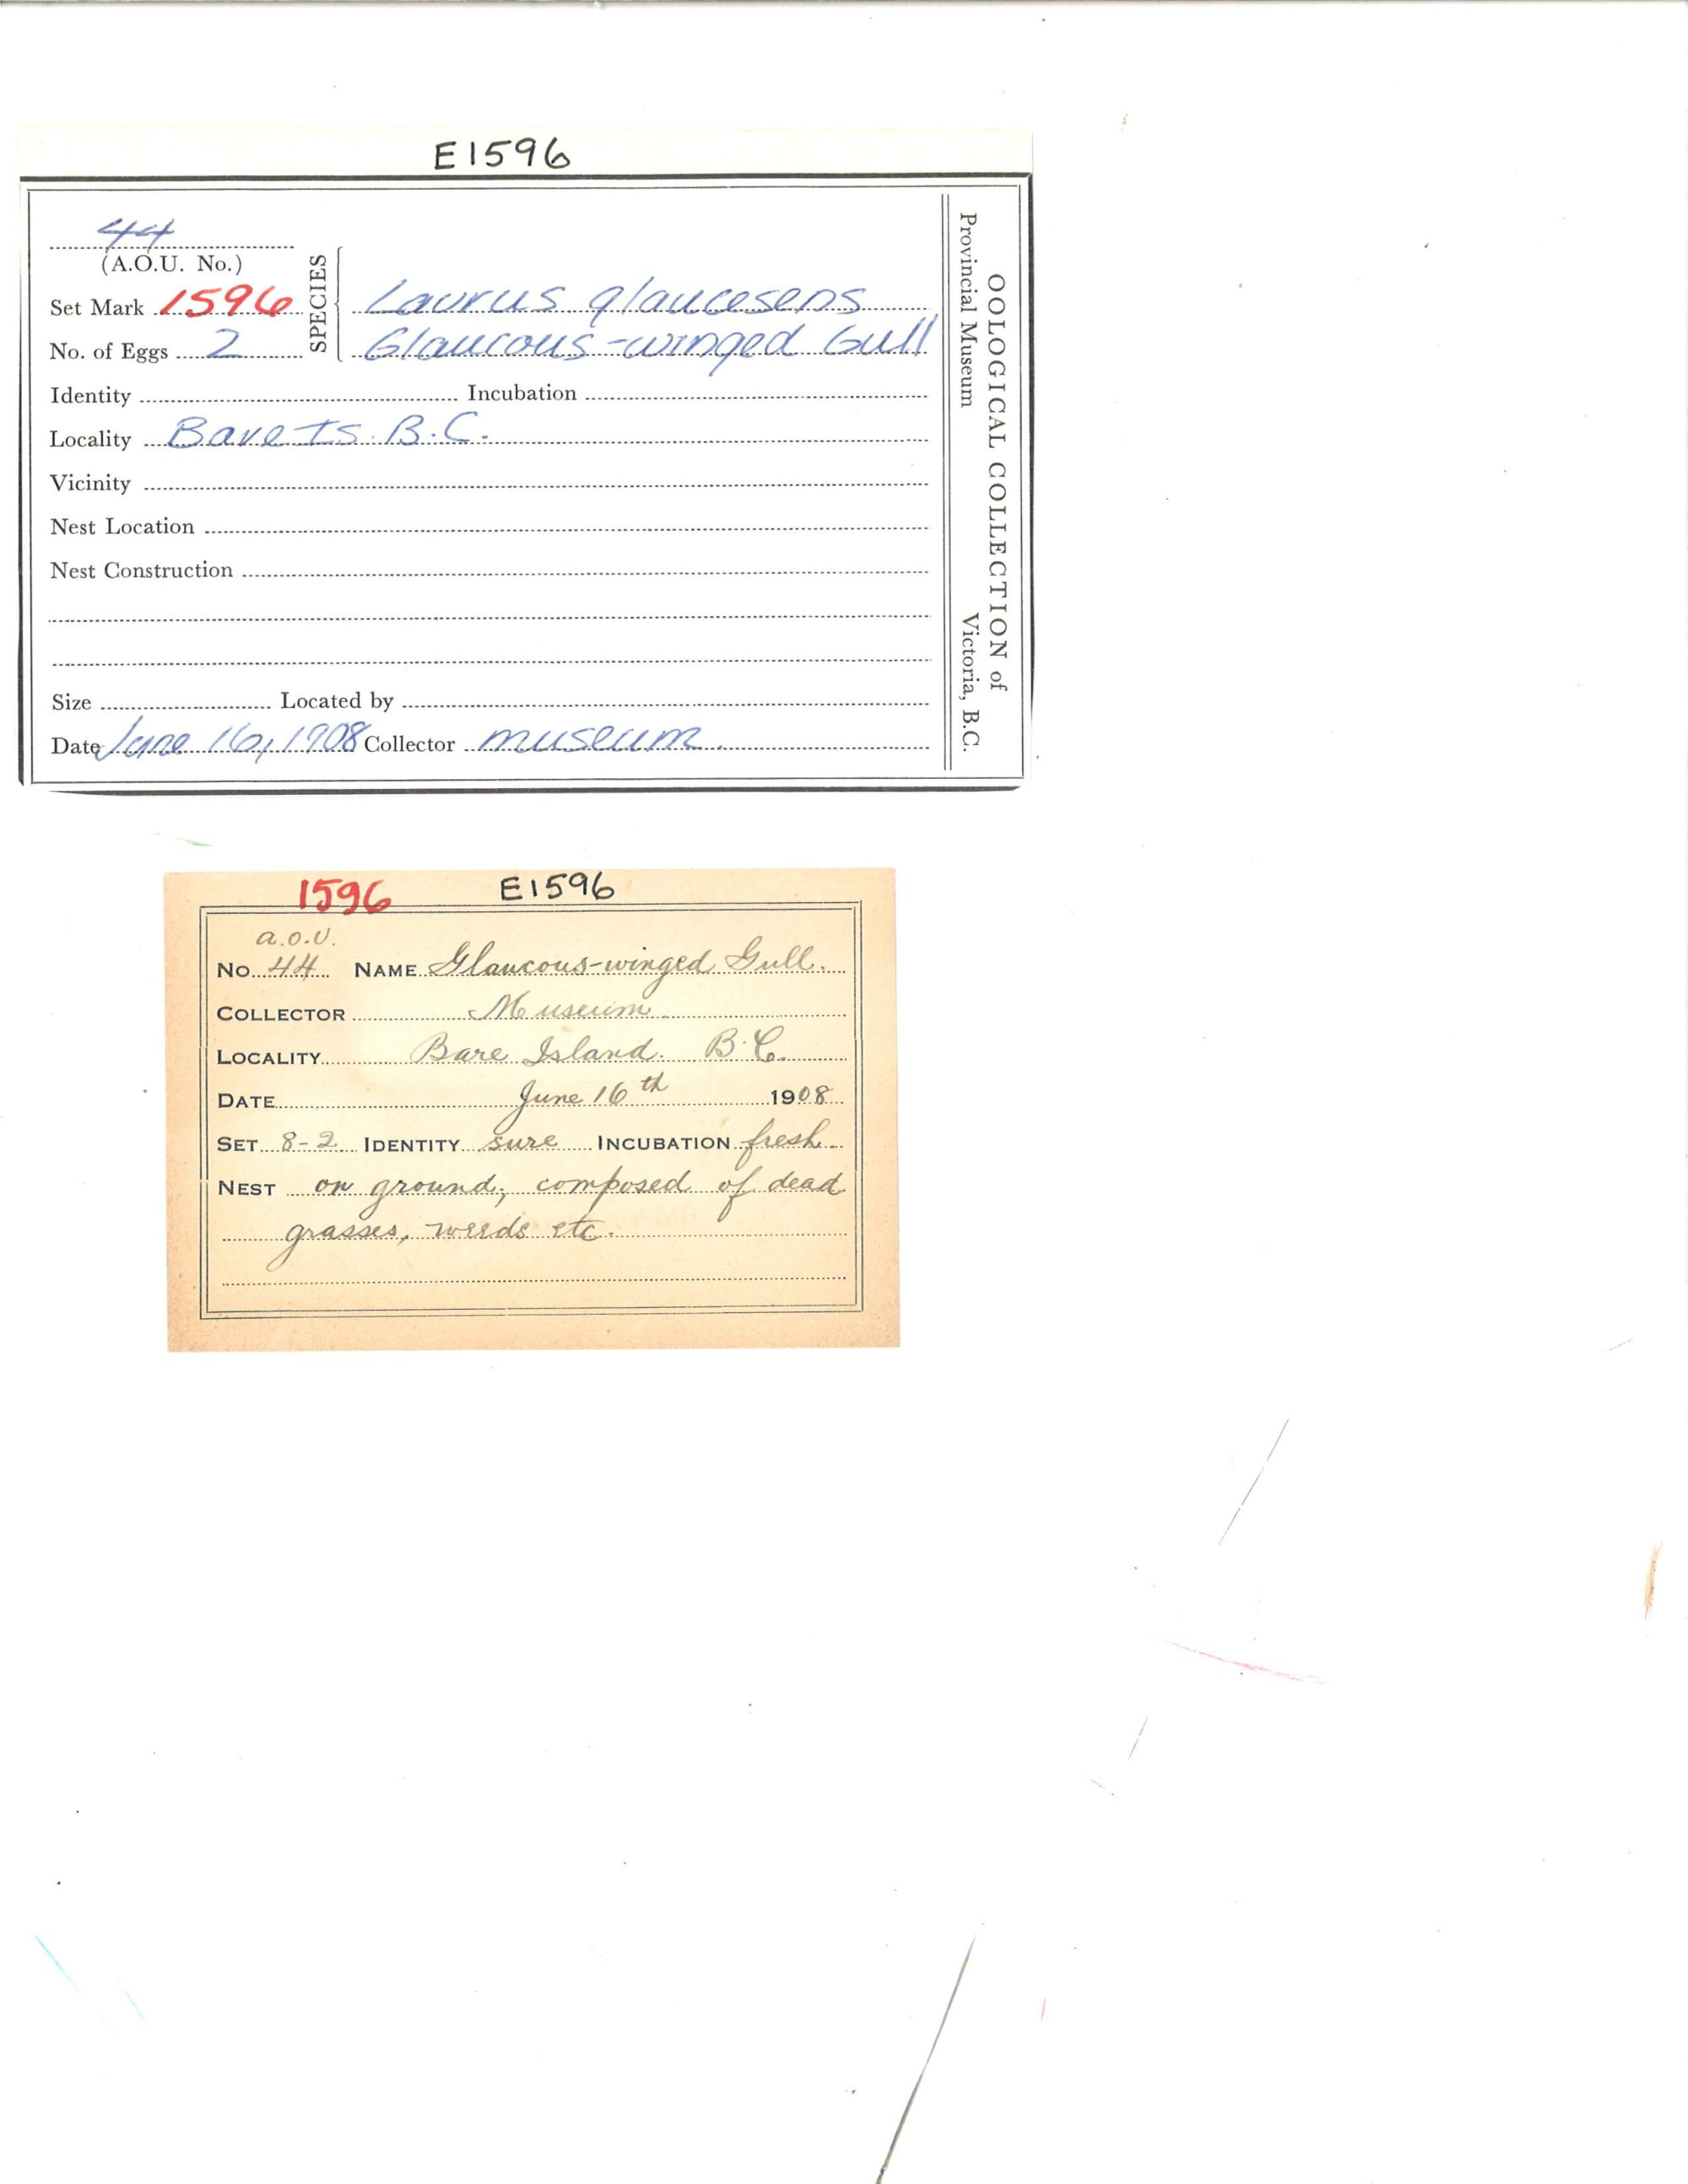 E1596
44
(A.O.U. No.)
SPECIES
Set Mark 1596
Laurus glaucesens
No. of Eggs 2
Glaucous-winged Gull
Identity Incubation
Locality Bare Is. B.C.
Vicinity
Nest Location
Nest Construction
Size Located by
Date June 16, 1908 Collector museum.
OOLOGICAL COLLECTION of
Provincial Museum Victoria, B.C.
1596 E1596
a.o.U.
No. 44 NAME Glaucous-winged Gull.
COLLECTOR Museum
LOCALITY Bare Island. B.C.
DATE June 16th 1908
SET 8-2 IDENTITY sure INCUBATION fresh
NEST on ground; composed of dead
grasses, weeds etc.